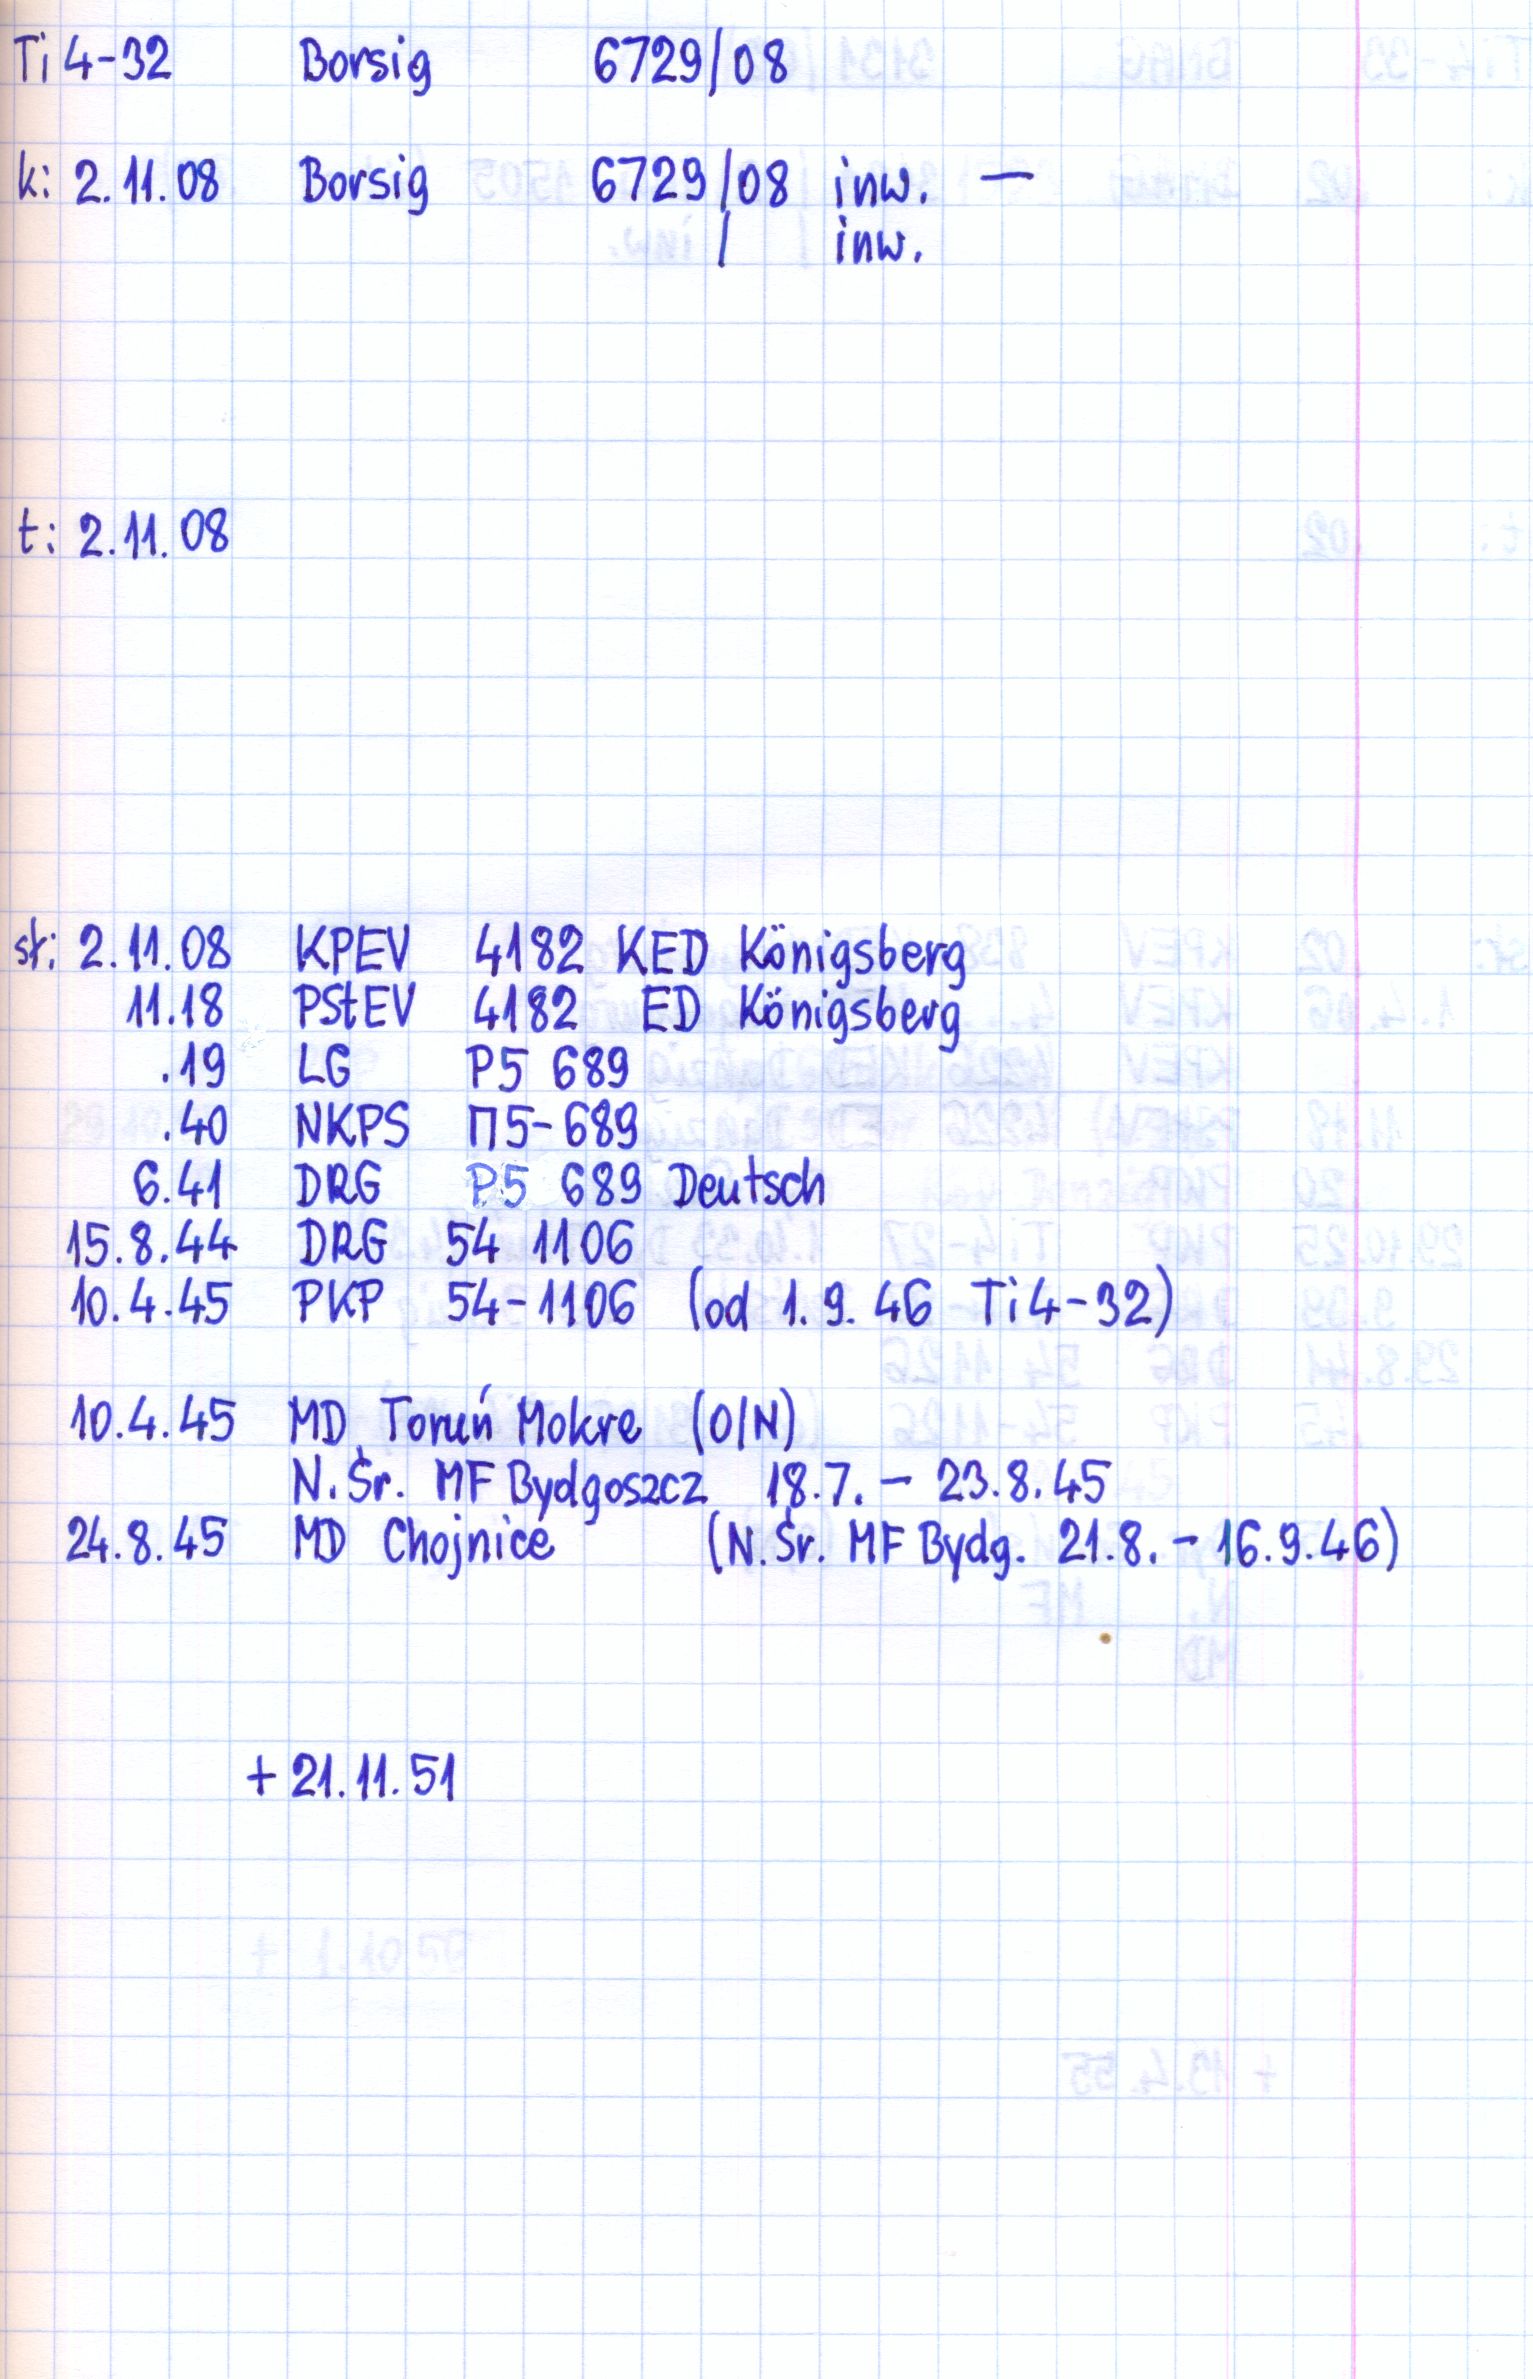 Ti 4-32 Borsig 6729/08
k: 2.11.08 Borsig 6729/08 inw. —
/ inw.
t: 2.11.08
st: 2.11.08 KPEV 4182 KED Königsberg
11.18 PStEV 4182 ED Königsberg
.19 LG P5 689
.40 NKPS П5-689
6.41 DRG P5 689 Deutsch
15.8.44 DRG 54 1106
10.4.45 PKP 54-1106 (od 1.9.46 Ti4-32)
10.4.45 MD Toruń Mokre (O/N)
N.Śr. MF Bydgoszcz 18.7. - 23.8.45
24.8.45 MD Chojnice (N.Śr. MF Bydg. 21.8. - 16.9.46)
+ 21.11.51